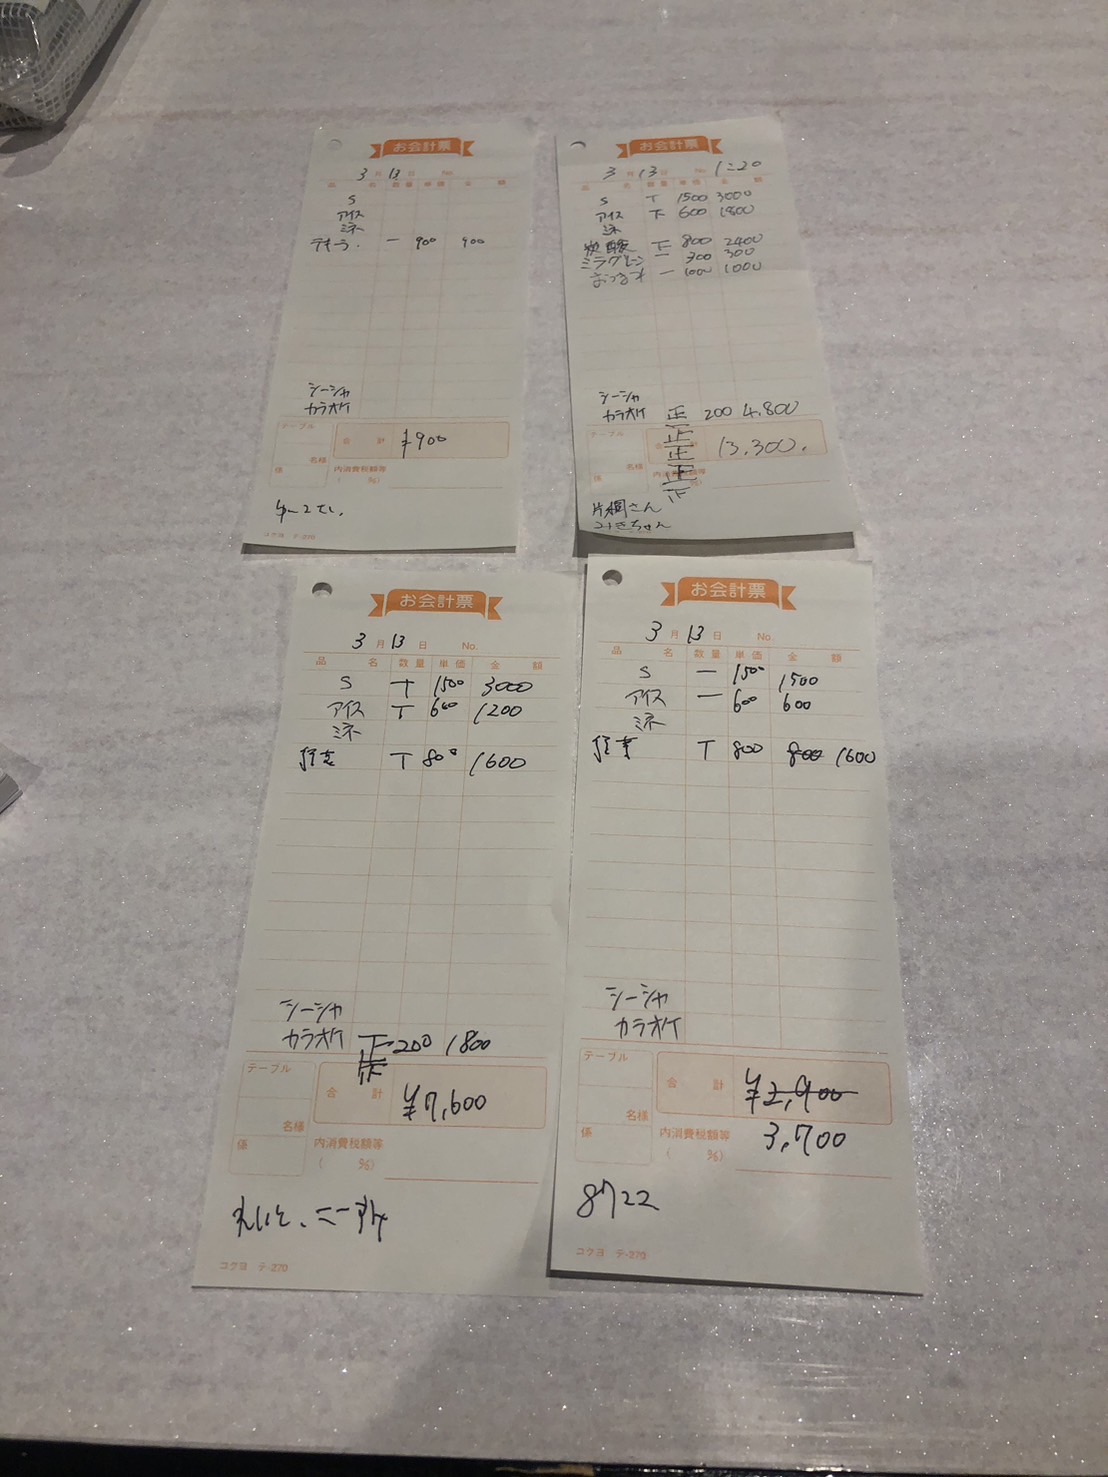 お会計票
3月13日 No.
品名 数量 単価 金額
S
アイス
ミネ
テキーラ. 一 900 900
シーシャ
カラオケ
テーブル
合計 ¥900
名様
係
内消費税額等
( %)
コクヨ テ-270
お会計票
3月13日 No. 1=20
品名 数量 単価 金額
S T 1500 3000
アイス 下 600 1800
ミネ
炭酸 下 800 2400
ミラグリーン 一 300 300
おつまみ 一 1000 1000
シーシャ
カラオケ 正 200 4,800
正
正
正
テーブル
合計 13,300.
名様
係
内消費税額等
%)
片桐さん
みきちゃん
お会計票
3月13日 No.
品名 数量 単価 金額
S T 1500 3000
アイス T 600 1200
ミネ
T 800 1600
シーシャ
カラオケ 正 200 1800
テーブル
合計 ¥7,600
名様
係
内消費税額等
( %)
コクヨ テ-270
お会計票
3月13日 No.
品名 数量 単価 金額
S 一 1500 1500
アイス 一 600 600
ミネ
T 800 800 1600
シーシャ
カラオケ
テーブル
合計 ¥2,900
名様
3,700
係
内消費税額等
( %)
8722
コクヨ テ-270